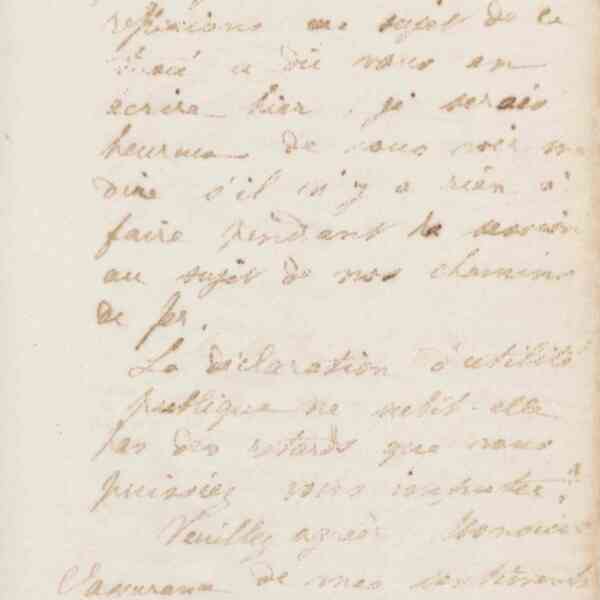 réflexions au sujet de la
a dû vous en
écrire hier, je serais
heureux de vous voir me
dire s'il n'y a rien à
faire pendant la session
au sujet de nos chemins
de fer.
La déclaration d'utilité
publique ne subit-elle
pas des retards que nous
puissiez vous imputer?
Veuillez agréer Monsieur
l'assurance de mes sentiments